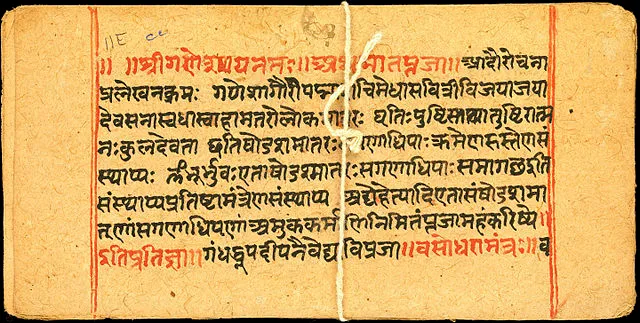 ॥E
॥ ॥श्रीगणेशायनमः॥अथमातृपूजा॥आदौरोचना
प्रलेखनक्रमः गणेशगौरीपद्माशचिमेधासावित्रीविजयाजया
देवसेनास्वधास्वाहामातरोलोकमातरः धृतिःपुष्टिस्तथातुष्टिरात्म
नःकुलदेवता इतिषोडशमातरः गणाधिपाः क्रमेण
स्थाप्यः भूर्भुवःएताषोडशमातरःसगणाधिपाःसमागछइति
संस्थाप्यप्रतिष्ठामंत्रेणसंस्थाप्य अद्येहेत्यादिएतासंषोडशमा
तृणांसगणाधिपणां अमुककर्म निमितंपूजामहंकरिष्ये॥
इतिप्रतिज्ञा॥गंधपुष्पदीपनैवेद्य पूजा॥वसोधारामंत्रः॥व